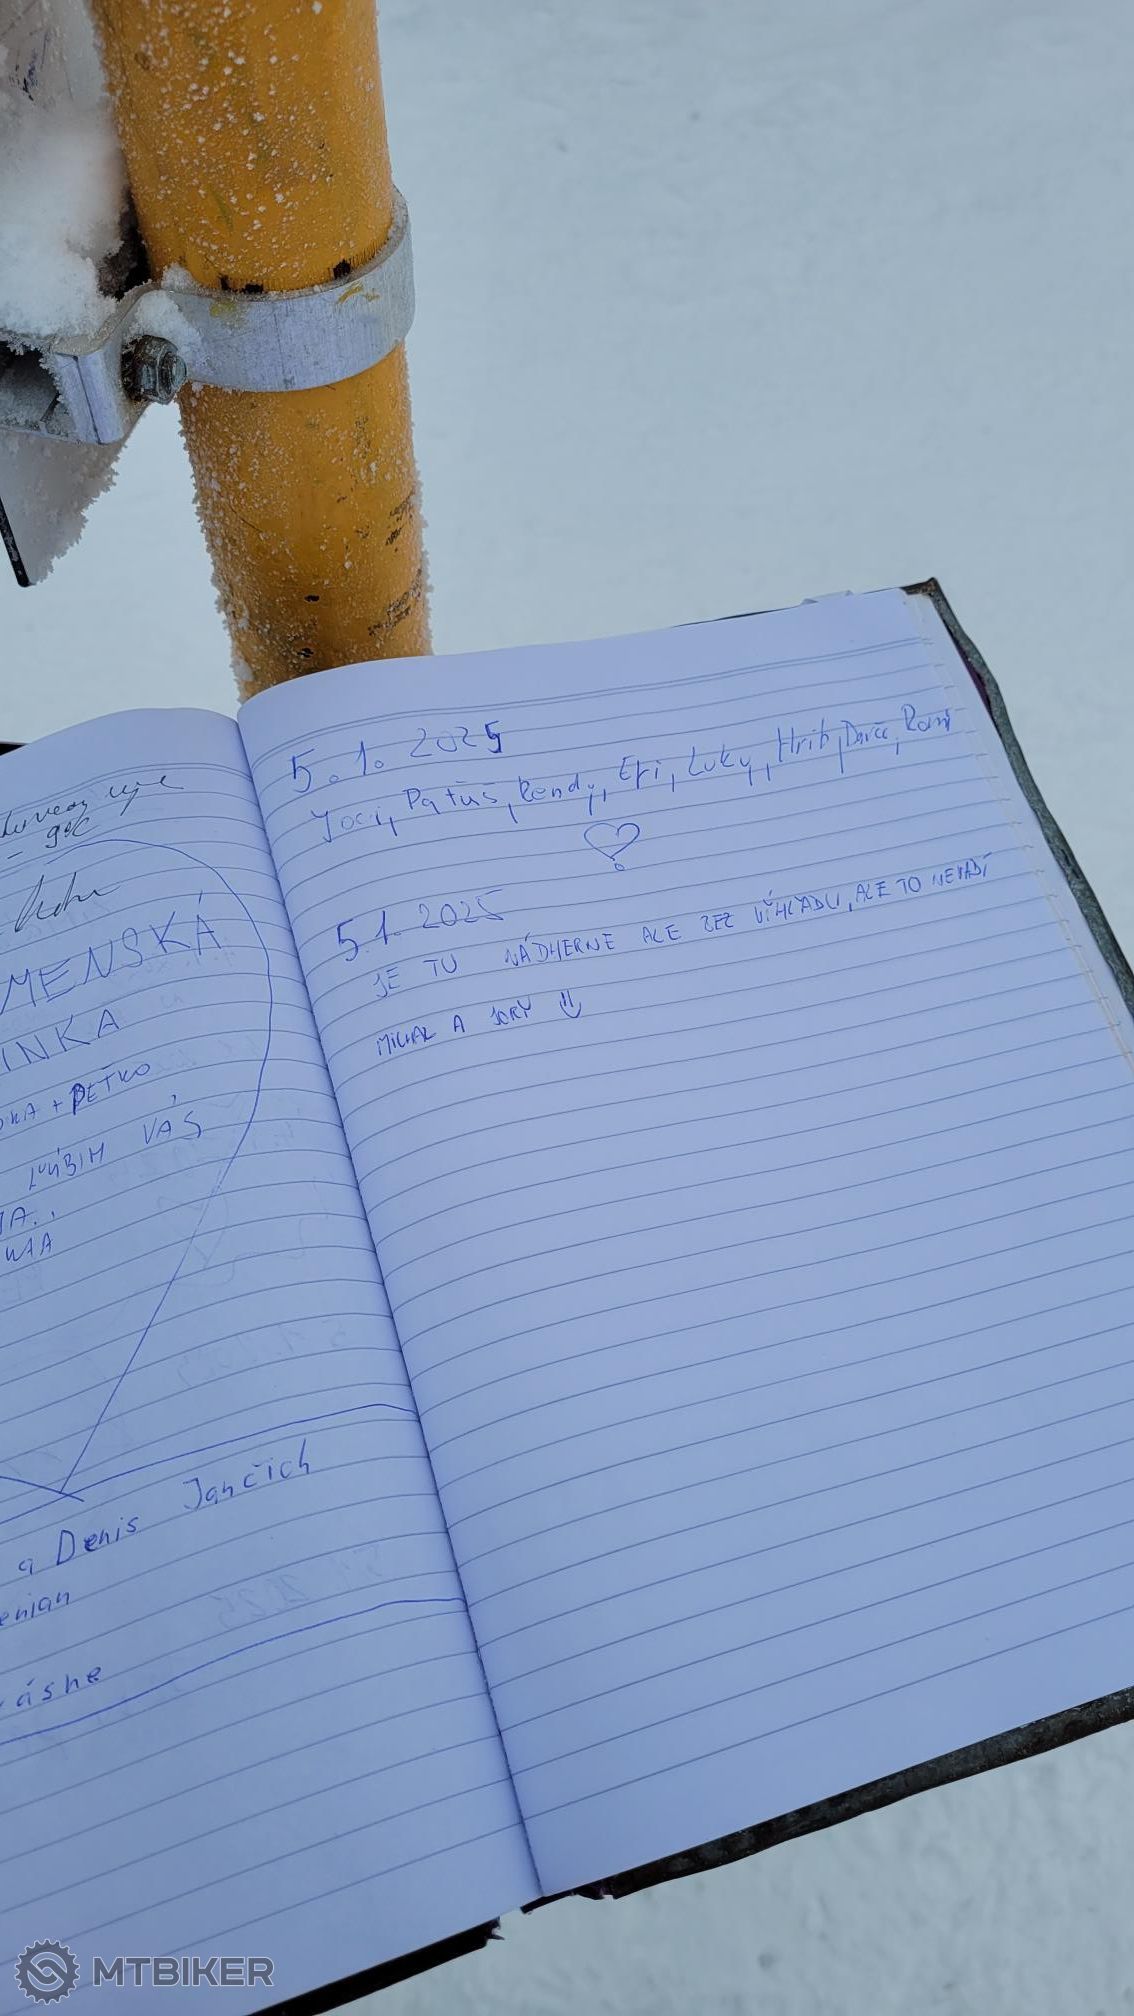 - 9°C
MENSKÁ
INKA
+ PEŤKO
ĽÚBIM VÁS
a Denis Jančich
enian
ásne
5.1.2025
Joci, Paťus, Rendy, Efi, Luky, Hríb, Darča, Romi
5.1.2025
JE TU NÁDHERNE ALE BEZ VÍHĽADU, ALE TO NEVADÍ
MICHAL A JORY
MTBIKER